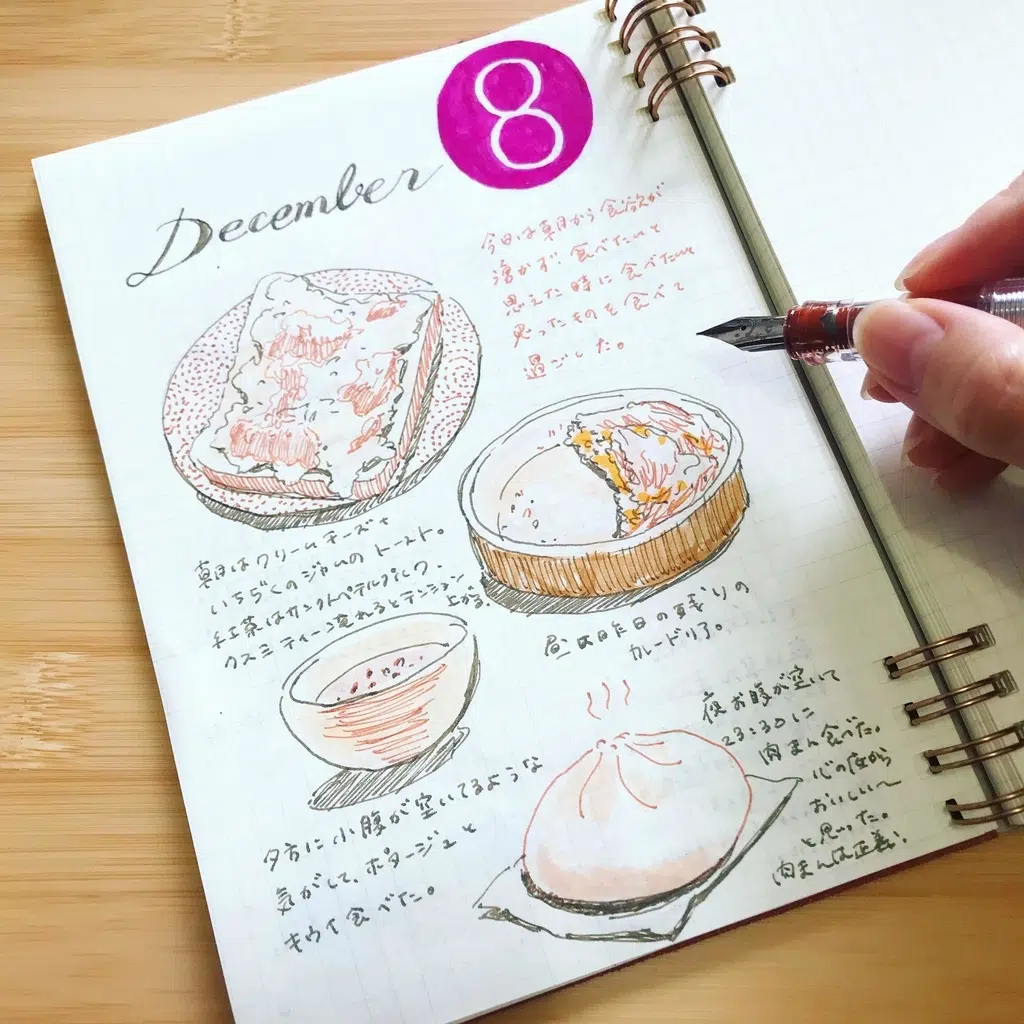 December 8
今日は朝から食欲が
湧かず 食べたいと
思えた時に食べたいと
思ったものを食べて
過ごした。
朝はクリームチーズと
いちぢくのジャムの トースト。
紅茶はサンクトペテルブルク、
クスミティー淹れるとテンション
上がる。
昼は昨日の残りの
カレードリア。
夕方に小腹が空いてるような
気がして、ポタージュと
キウイ食べた。
夜お腹が空いて
23:30に
肉まん食べた。
心の底から
おいしい〜
と思った。
肉まんは正義!